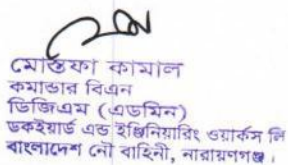 মোস্তফা কামাল
কমান্ডার বিএন
ডিজিএম (এডমিন)
ডকইয়ার্ড এন্ড ইঞ্জিনিয়ারিং ওয়ার্কস লি
বাংলাদেশ নৌ বাহিনী, নারায়ণগঞ্জ।